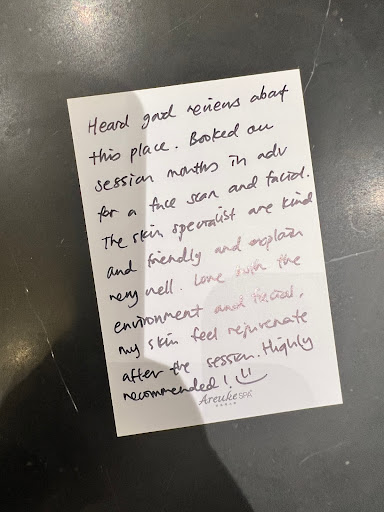 Heard good reviews about
this place. Booked our
session months in adv
for a face scan and facial.
The skin specialist are kind
and friendly and explain
very well. Love both the
environment and facial,
my skin feel rejuvenate
after the session. Highly
recommended! :)
Areuke SPA